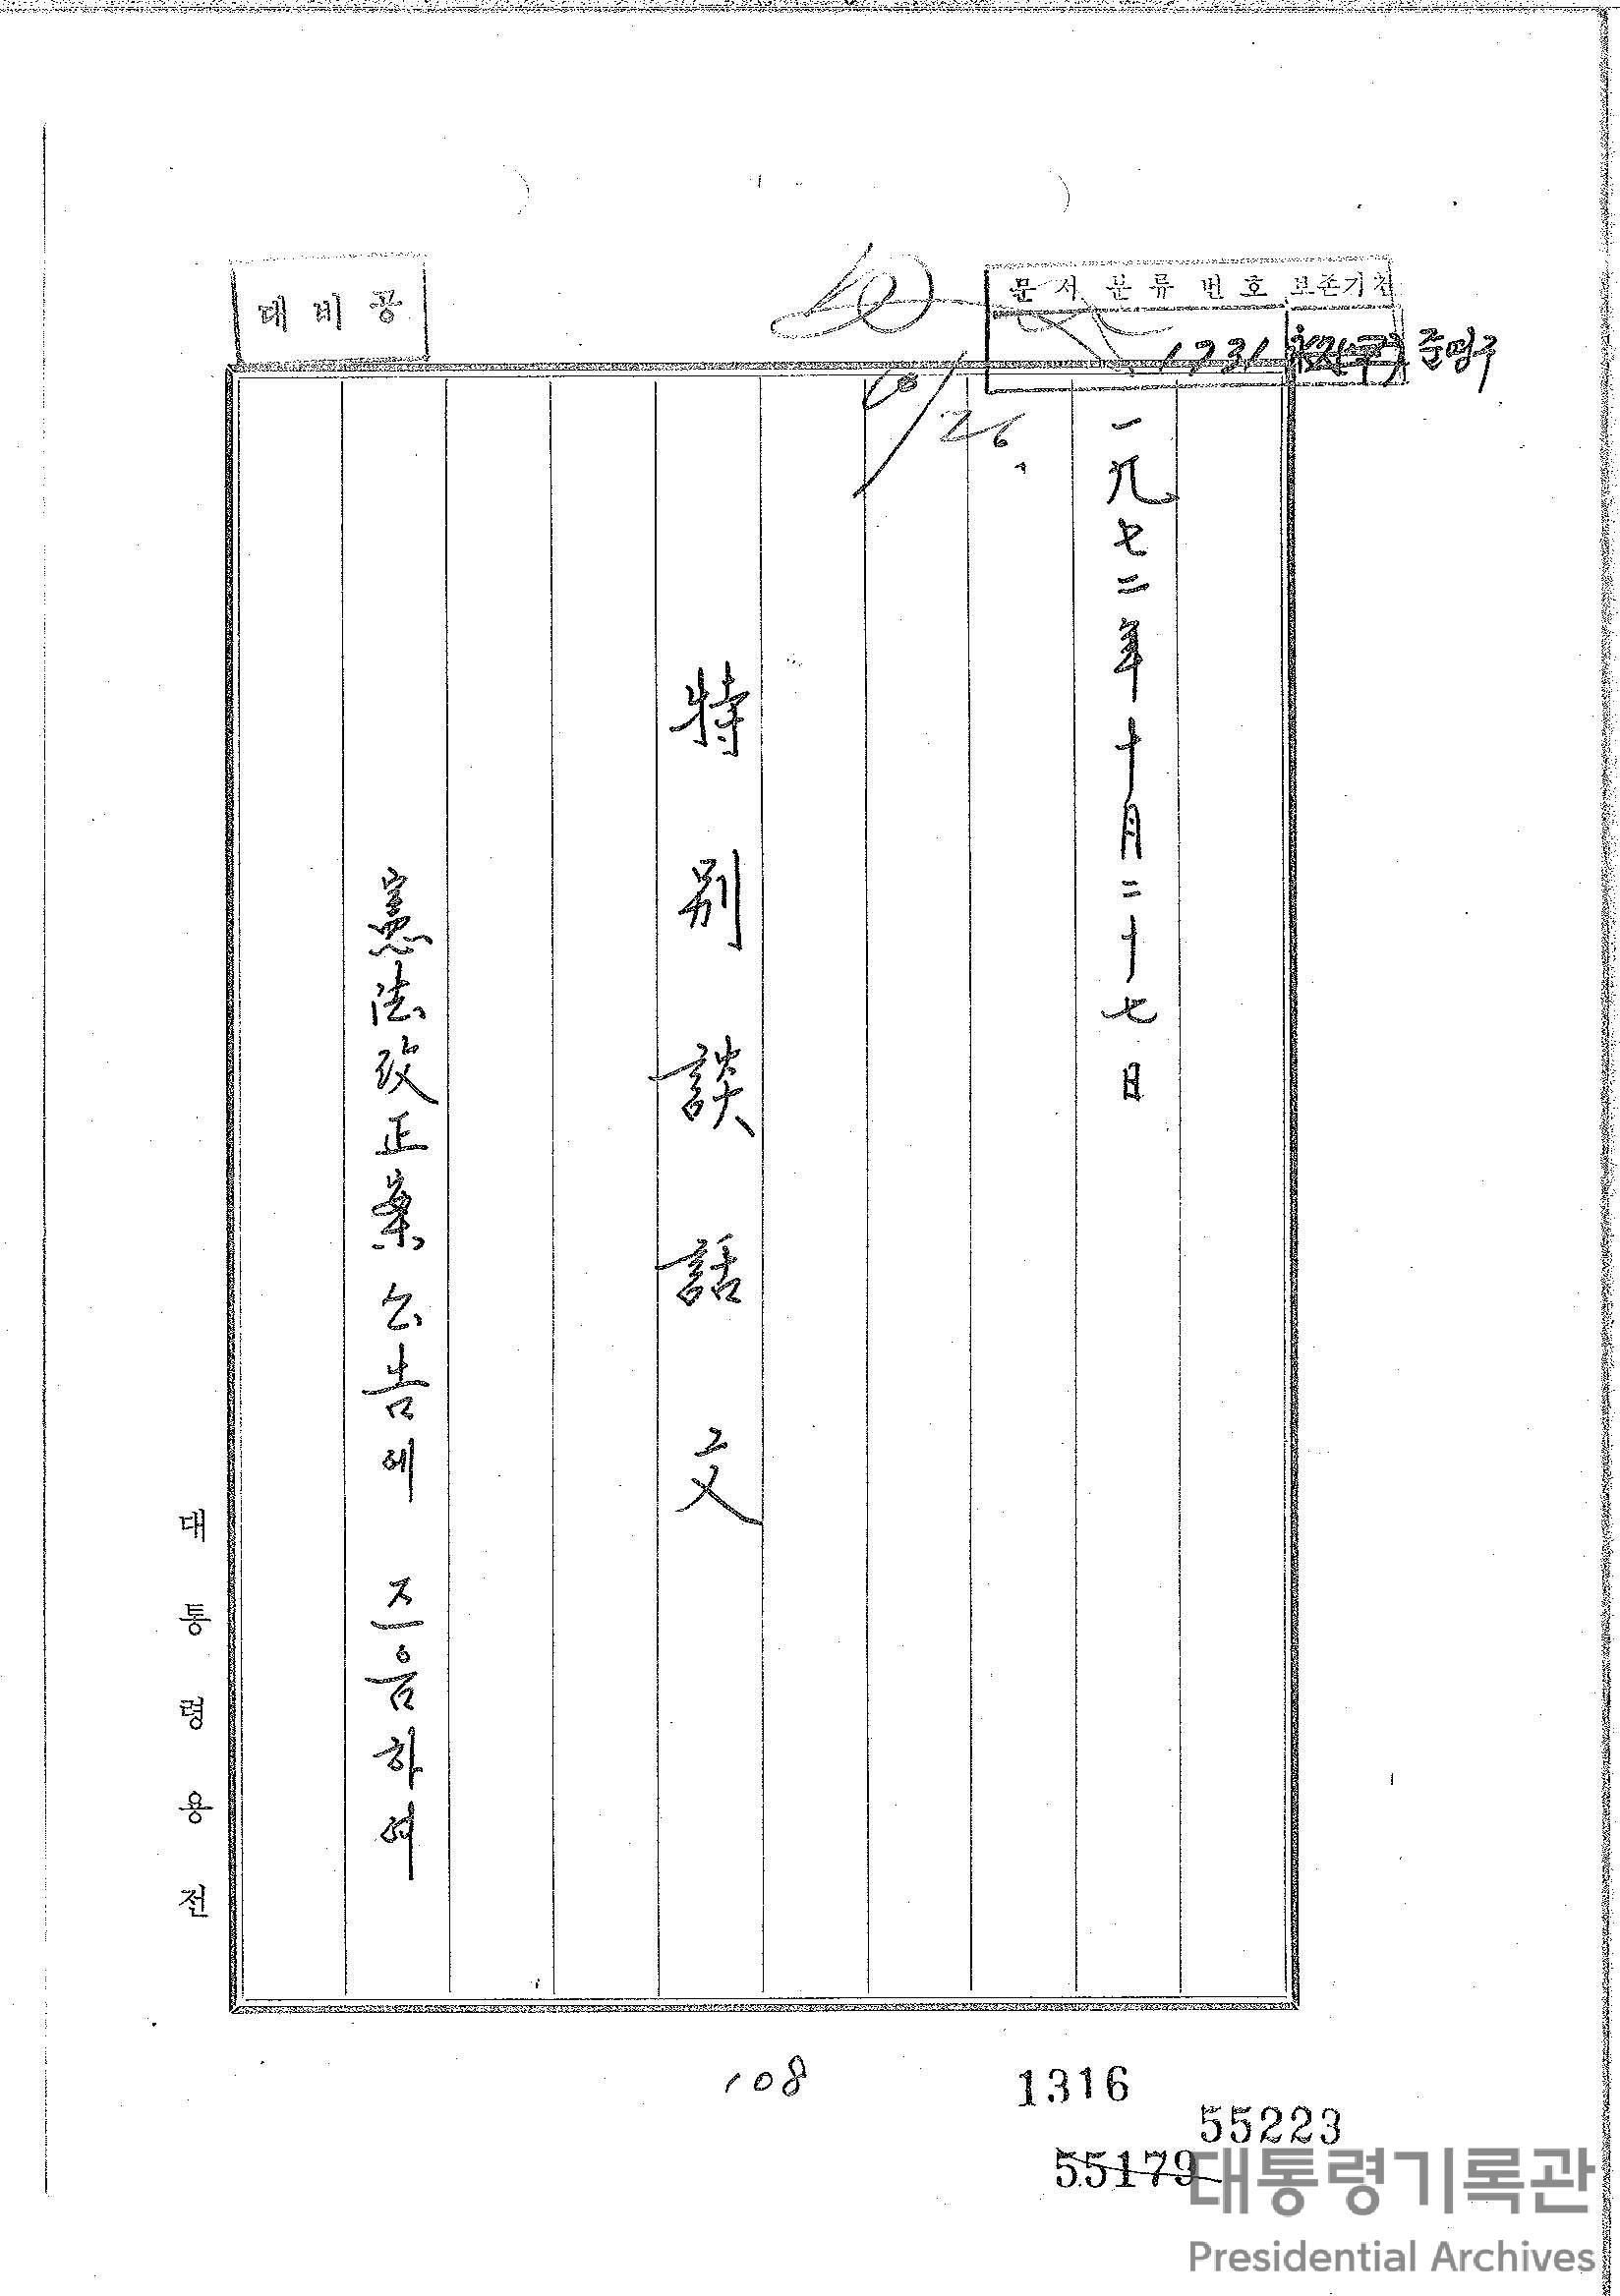 대비공
문서분류번호 보존기간
1731 준영구
10/26.
一九七二年十月二十七日
特別談話文
憲法改正案 公告에 즈음하여
대통령용전
108
1316
55223
55179
대통령기록관
Presidential Archives